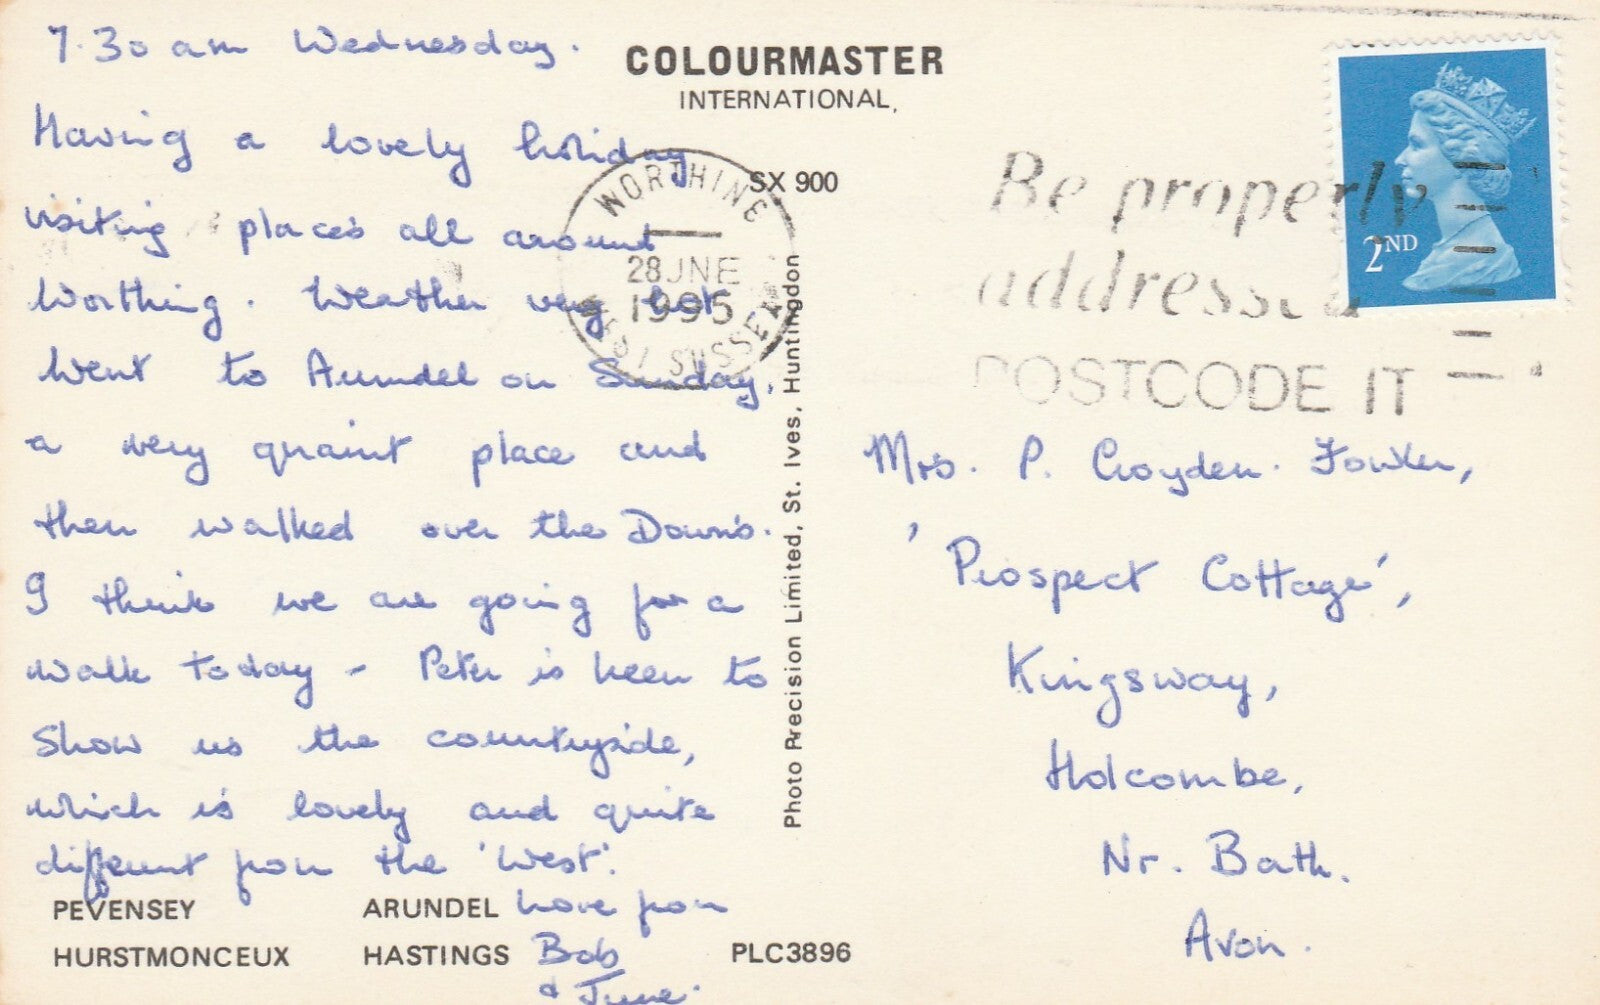 7.30 am Wednesday.
Having a lovely holiday
visiting places all around
Worthing. Weather very hot
Went to Arundel on Sunday,
a very quaint place and
then walked over the Downs.
I think we are going for a
walk today - Peter is keen to
show us the countryside,
which is lovely and quite
different from the 'West'.
Love from
Bob
& June.
PEVENSEY ARUNDEL
HURSTMONCEUX HASTINGS PLC3896
COLOURMASTER
INTERNATIONAL,
SX 900
Photo Precision Limited, St. Ives, Huntingdon
WORTHING
28 JNE
1995
WEST SUSSEX
Be properly
addressed
POSTCODE IT
2ND
Mrs. P. Croyden-Fowler,
'Prospect Cottage',
Kingsway,
Holcombe,
Nr. Bath.
Avon.